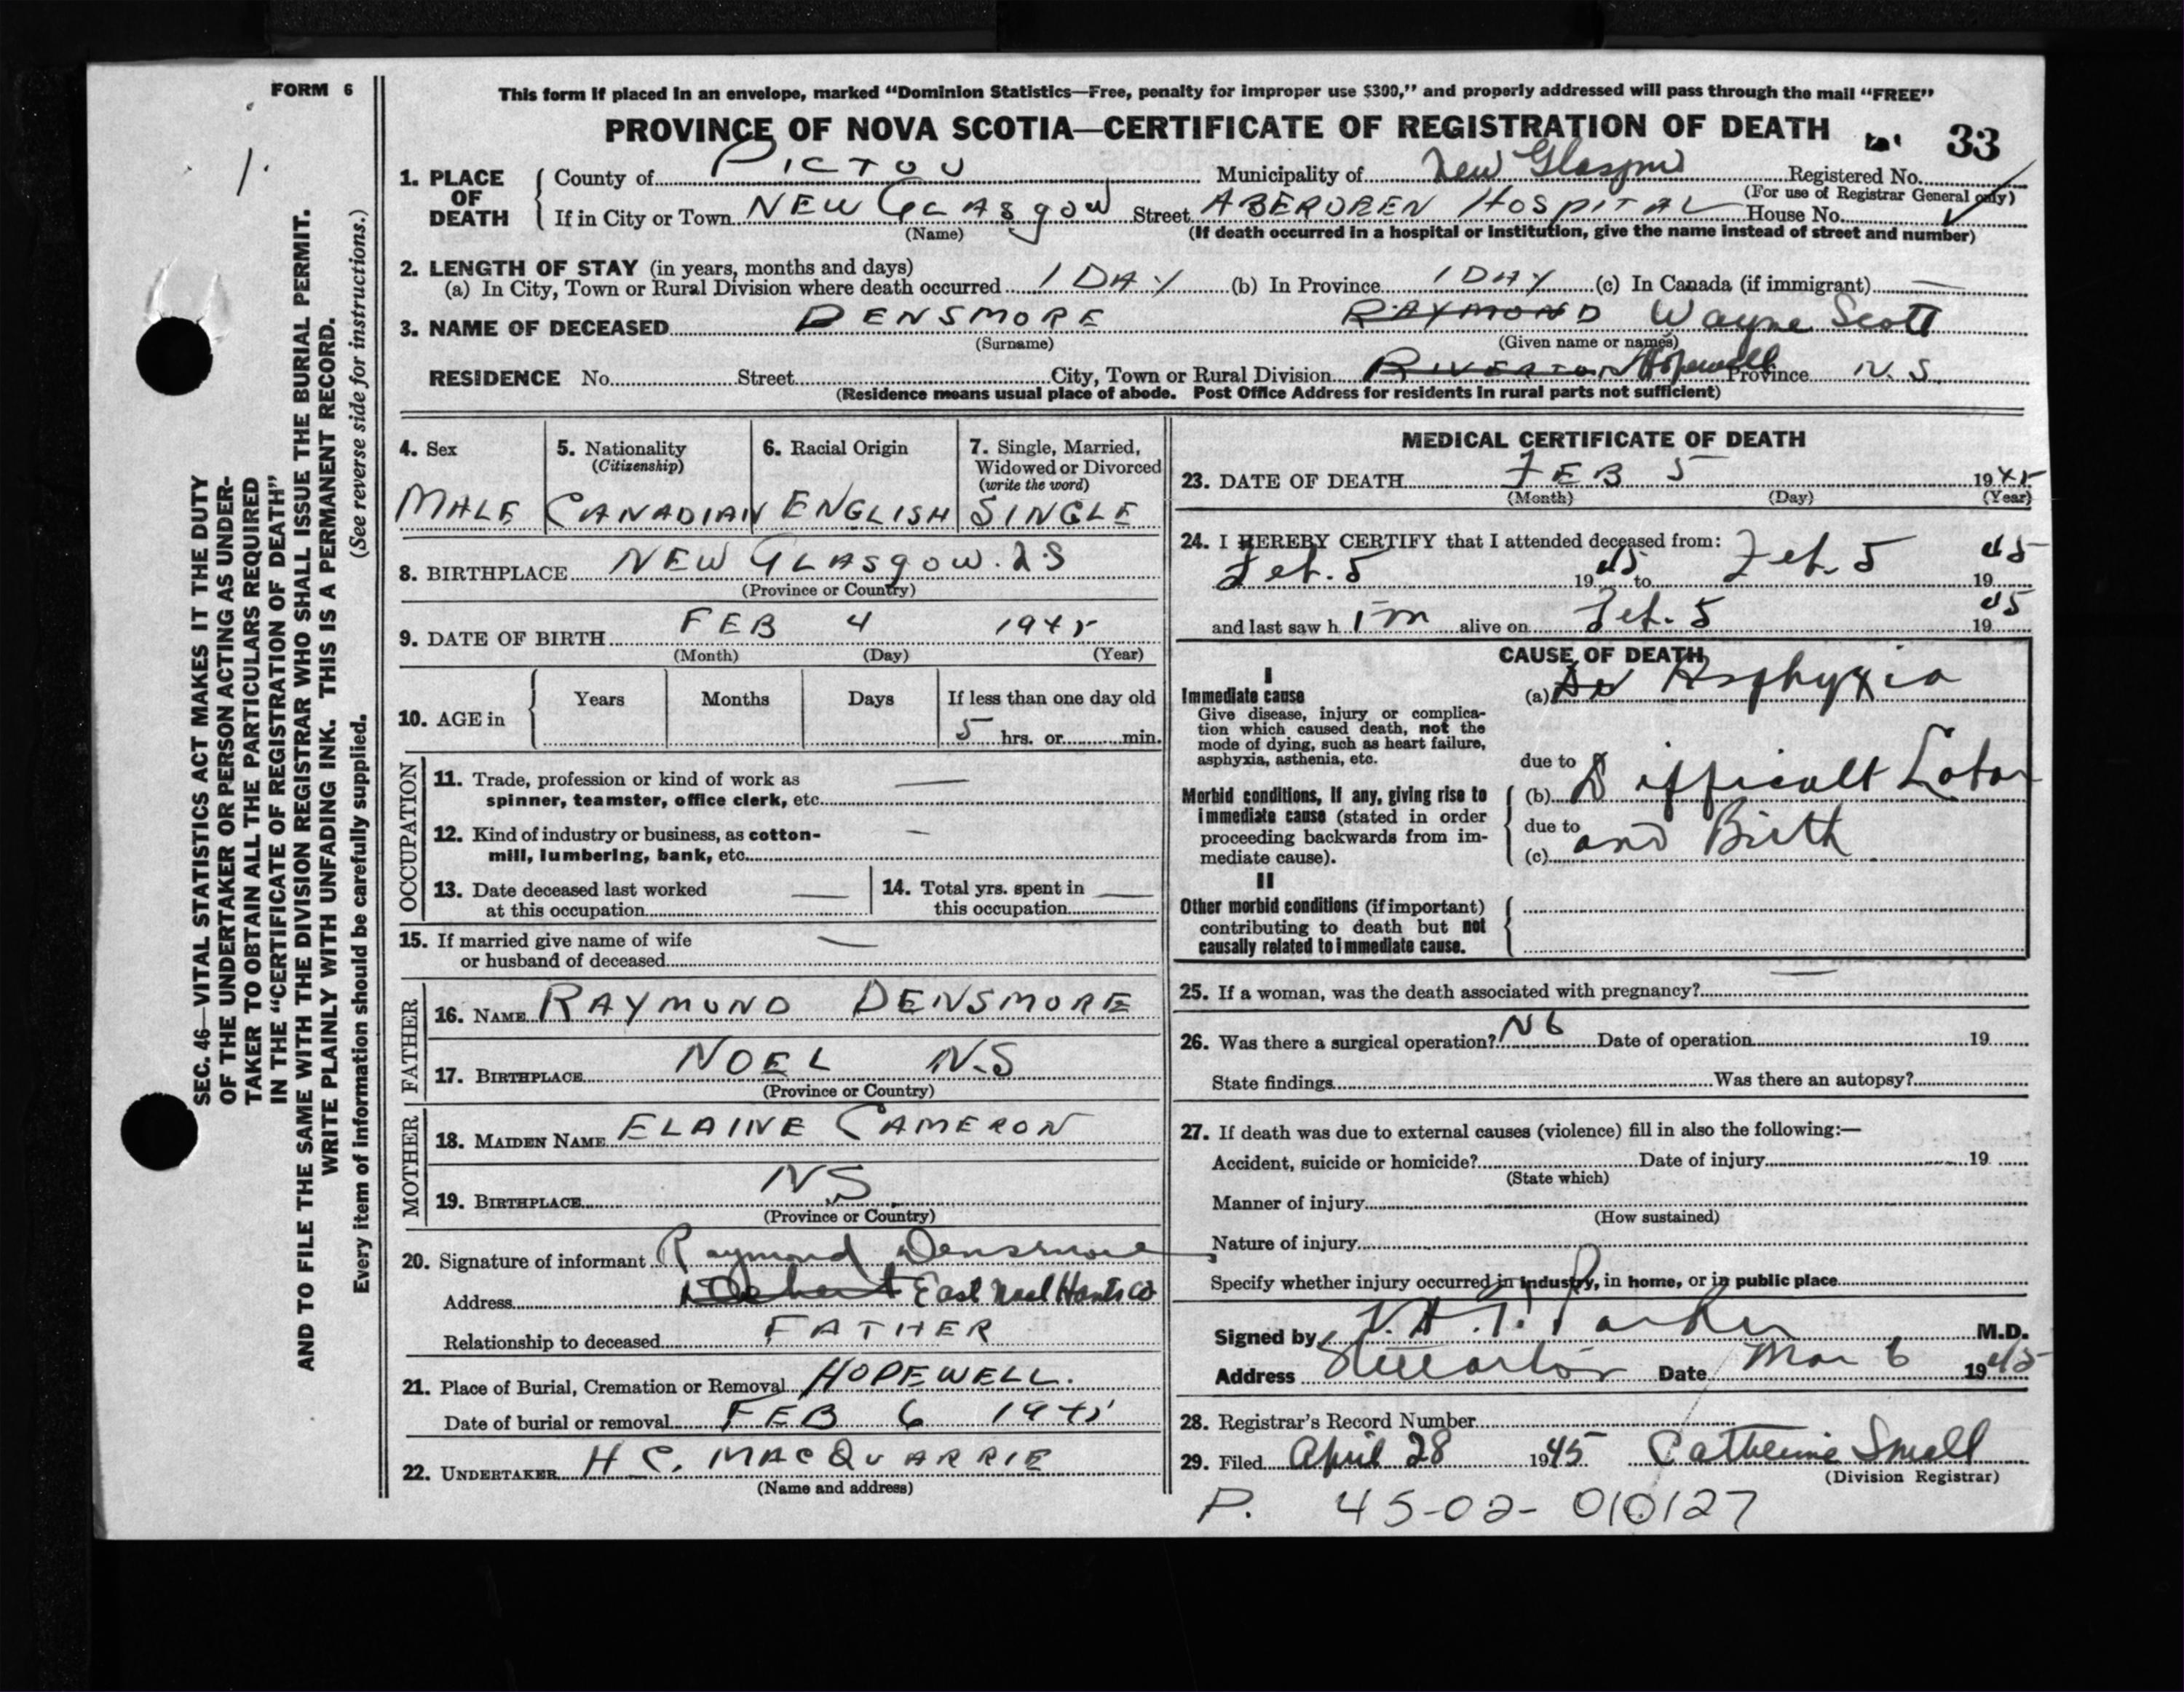 FORM 6
1.
SEC. 46—VITAL STATISTICS ACT MAKES IT THE DUTY
OF THE UNDERTAKER OR PERSON ACTING AS UNDER-
TAKER TO OBTAIN ALL THE PARTICULARS REQUIRED
IN THE "CERTIFICATE OF REGISTRATION OF DEATH"
AND TO FILE THE SAME WITH THE DIVISION REGISTRAR WHO SHALL ISSUE THE BURIAL PERMIT.
WRITE PLAINLY WITH UNFADING INK. THIS IS A PERMANENT RECORD.
Every item of information should be carefully supplied. (See reverse side for instructions.)
This form if placed in an envelope, marked "Dominion Statistics—Free, penalty for improper use $300," and properly addressed will pass through the mail "FREE"
PROVINCE OF NOVA SCOTIA—CERTIFICATE OF REGISTRATION OF DEATH 33
1. PLACE OF DEATH
County of PICTOU Municipality of New Glasgow Registered No.
(For use of Registrar General only)
If in City or Town NEW GLASgow Street ABERDREN HOSPITAL House No.
(Name) (If death occurred in a hospital or institution, give the name instead of street and number)
2. LENGTH OF STAY (in years, months and days)
(a) In City, Town or Rural Division where death occurred 1 DAY (b) In Province 1 DAY (c) In Canada (if immigrant) —
3. NAME OF DECEASED DENSMORE RAYMOND Wayne Scott
(Surname) (Given name or names)
RESIDENCE No. Street City, Town or Rural Division RIVERTON Hopewell Province N.S.
(Residence means usual place of abode. Post Office Address for residents in rural parts not sufficient)
4. Sex MALE
5. Nationality (Citizenship) CANADIAN
6. Racial Origin ENGLISH
7. Single, Married, Widowed or Divorced (write the word) SINGLE
8. BIRTHPLACE NEW GLASgow. NS
(Province or Country)
9. DATE OF BIRTH FEB 4 1945
(Month) (Day) (Year)
10. AGE in Years Months Days If less than one day old
5 hrs. or min.
OCCUPATION
11. Trade, profession or kind of work as —
spinner, teamster, office clerk, etc.
12. Kind of industry or business, as cotton- —
mill, lumbering, bank, etc.
13. Date deceased last worked —
at this occupation
14. Total yrs. spent in —
this occupation
15. If married give name of wife —
or husband of deceased
FATHER
16. NAME RAYMOND DENSMORE
17. BIRTHPLACE NOEL N.S
(Province or Country)
MOTHER
18. MAIDEN NAME ELAINE CAMERON
19. BIRTHPLACE NS.
(Province or Country)
20. Signature of informant Raymond Densmore
Address Debert East Noel Hants Co
Relationship to deceased FATHER
21. Place of Burial, Cremation or Removal HOPEWELL.
Date of burial or removal FEB 6 1945
22. UNDERTAKER H C. MACQUARRIE
(Name and address)
MEDICAL CERTIFICATE OF DEATH
23. DATE OF DEATH FEB 5 1945
(Month) (Day) (Year)
24. I HEREBY CERTIFY that I attended deceased from:
Feb. 5 1945 to Feb. 5 1945
and last saw h im alive on Feb. 5 1945
CAUSE OF DEATH
I
Immediate cause (a) Asphyxia
Give disease, injury or complica-
tion which caused death, not the
mode of dying, such as heart failure,
asphyxia, asthenia, etc.
due to
Morbid conditions, if any, giving rise to
immediate cause (stated in order
proceeding backwards from im-
mediate cause).
(b) Difficult Labor
due to
(c) and Birth
II
Other morbid conditions (if important)
contributing to death but not
causally related to immediate cause.
25. If a woman, was the death associated with pregnancy? —
26. Was there a surgical operation? No Date of operation 19
State findings Was there an autopsy?
27. If death was due to external causes (violence) fill in also the following:—
Accident, suicide or homicide? Date of injury 19
(State which)
Manner of injury
(How sustained)
Nature of injury
Specify whether injury occurred in industry, in home, or in public place
Signed by V. H. T. Parker M.D.
Address Stellarton Date Mar 6 1945
28. Registrar's Record Number
29. Filed April 28 1945 Catherine Small
(Division Registrar)
P. 45-02-010127